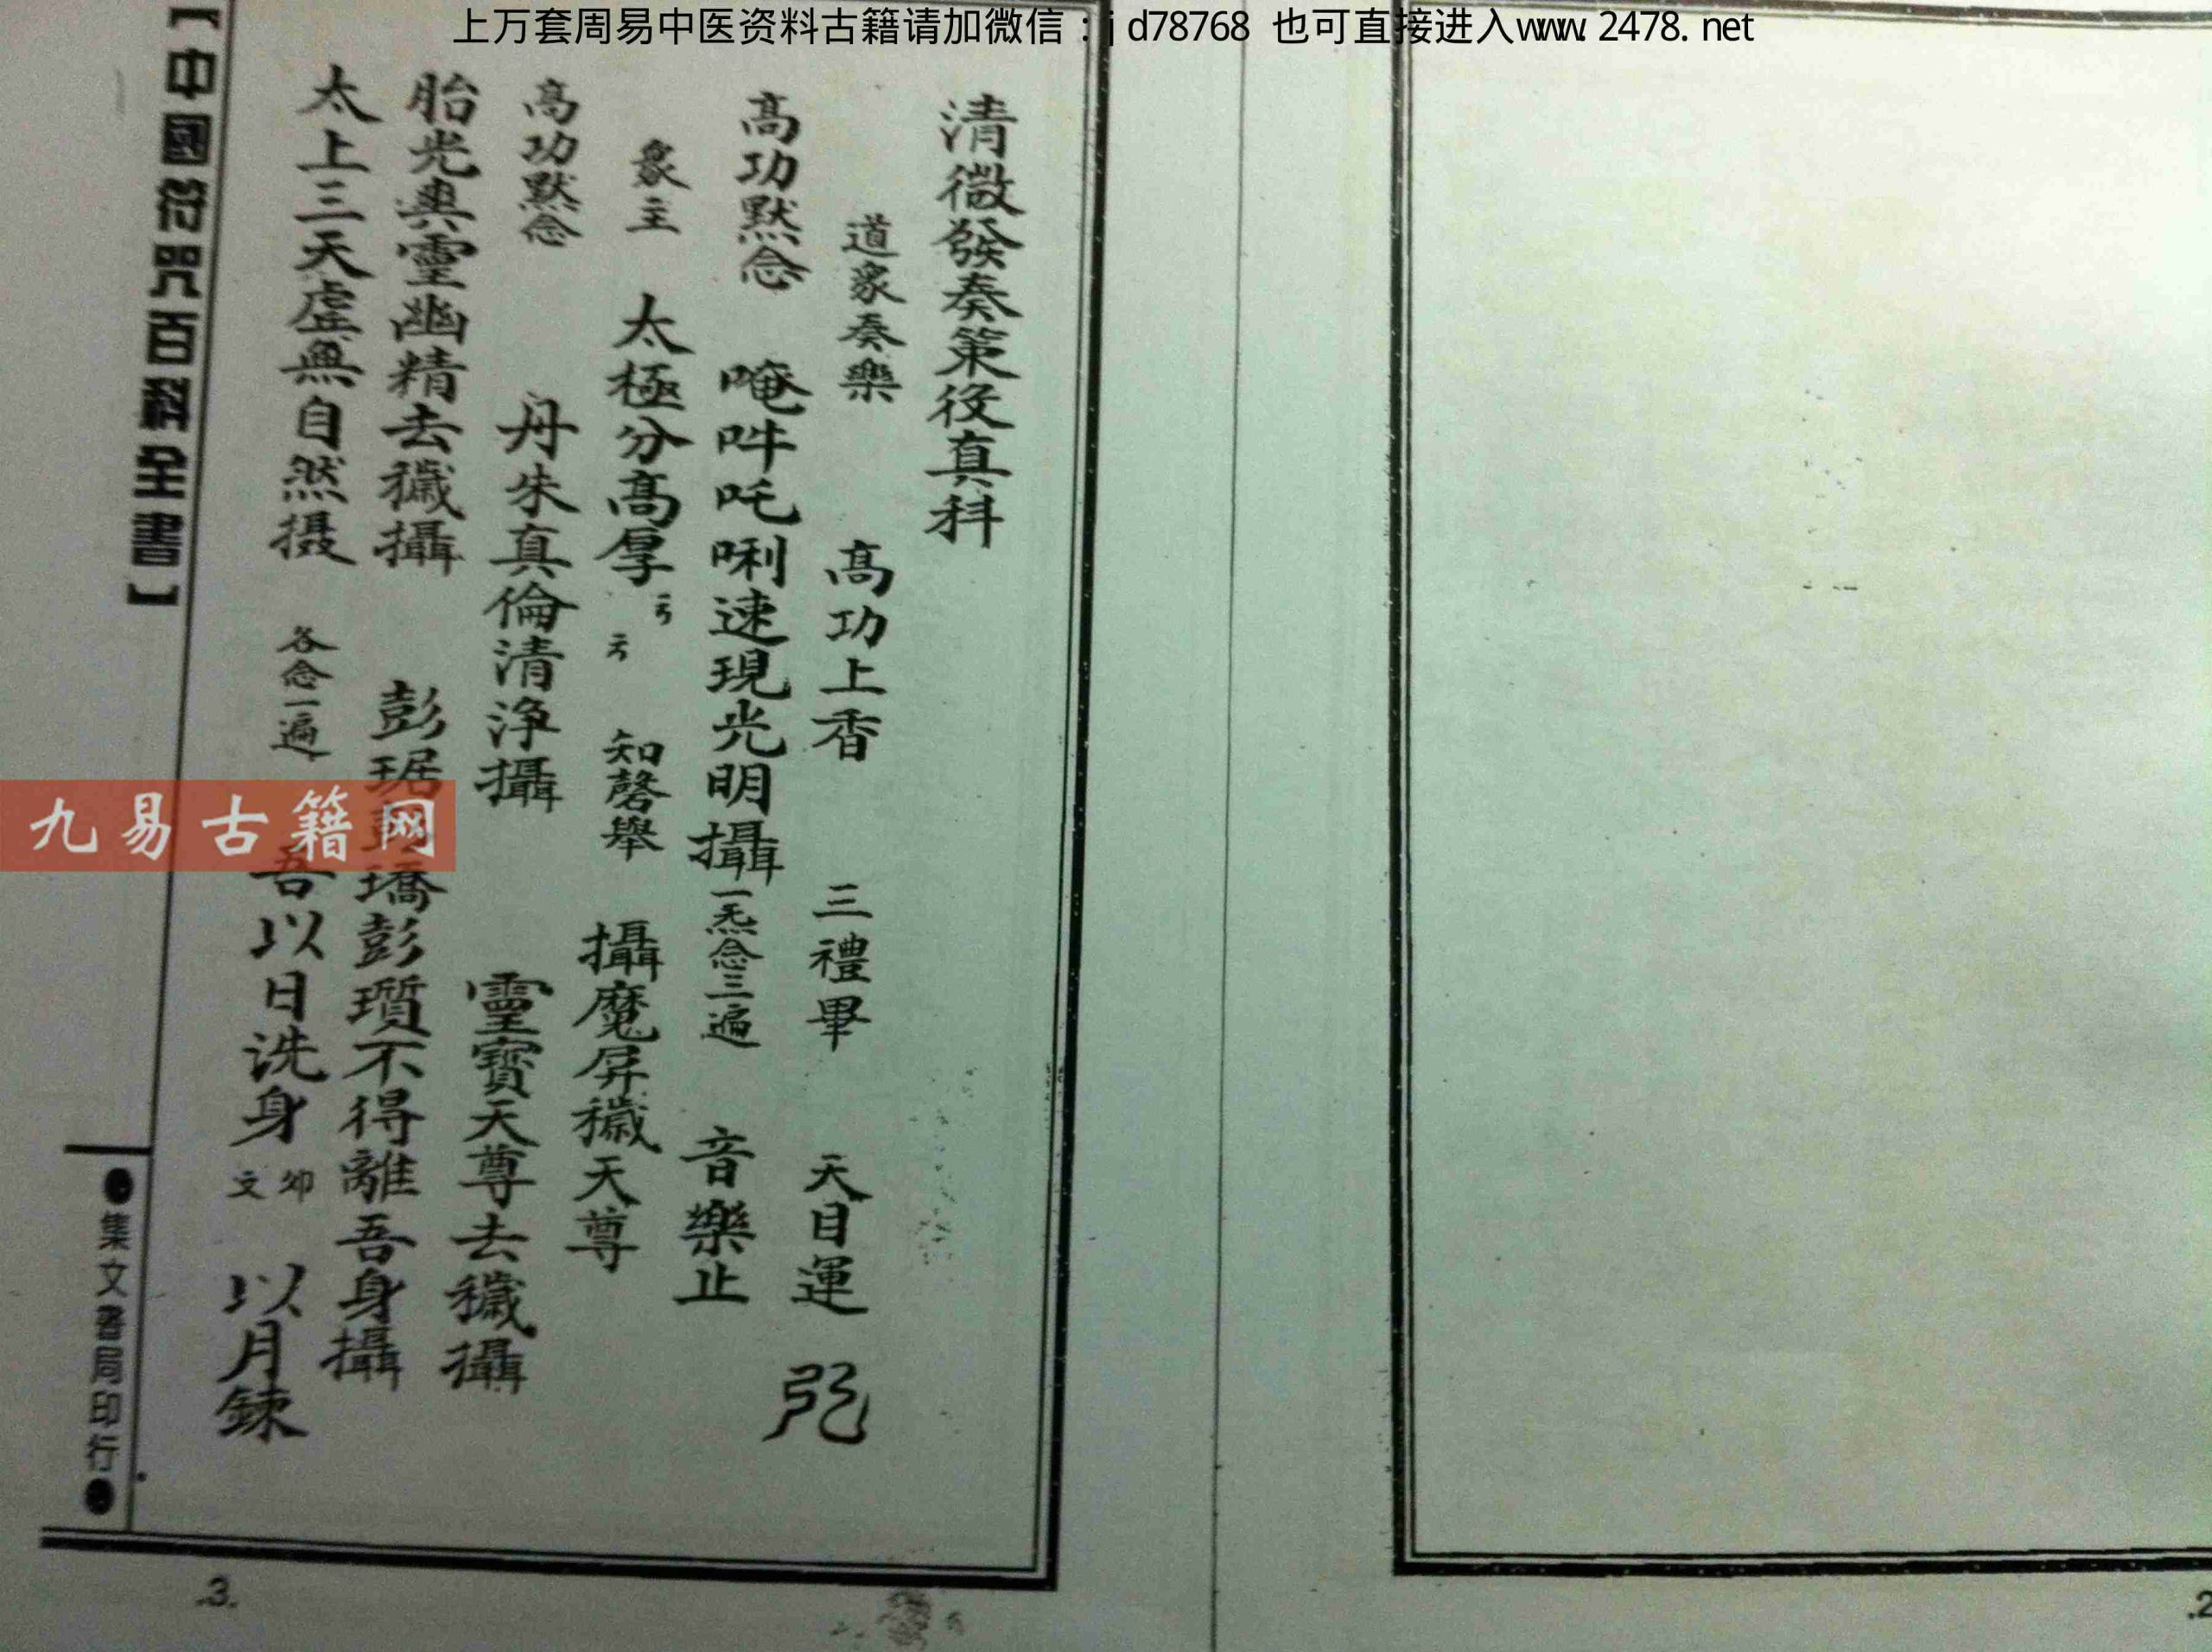 上万套周易中医资料古籍请加微信：jd78768 也可直接进入www.2478.net
清微發奏策役真科
道衆奏樂 高功上香 三禮畢 天目運
高功默念 唵吽吒唎速現光明攝 一炁念三遍 音樂止
衆主 太極分高厚 知磬舉 攝魔屏穢天尊
高功默念 丹朱真倫清淨攝 靈寶天尊去穢攝
胎光爽靈幽精去穢攝 彭琚彭璚彭瓆不得離吾身攝
太上三天虛無自然摄 各念一遍 吾以日洗身 卯文 以月鍊
【中國符咒百科全書】
●集文書局印行●
九易古籍网
.3.
.2